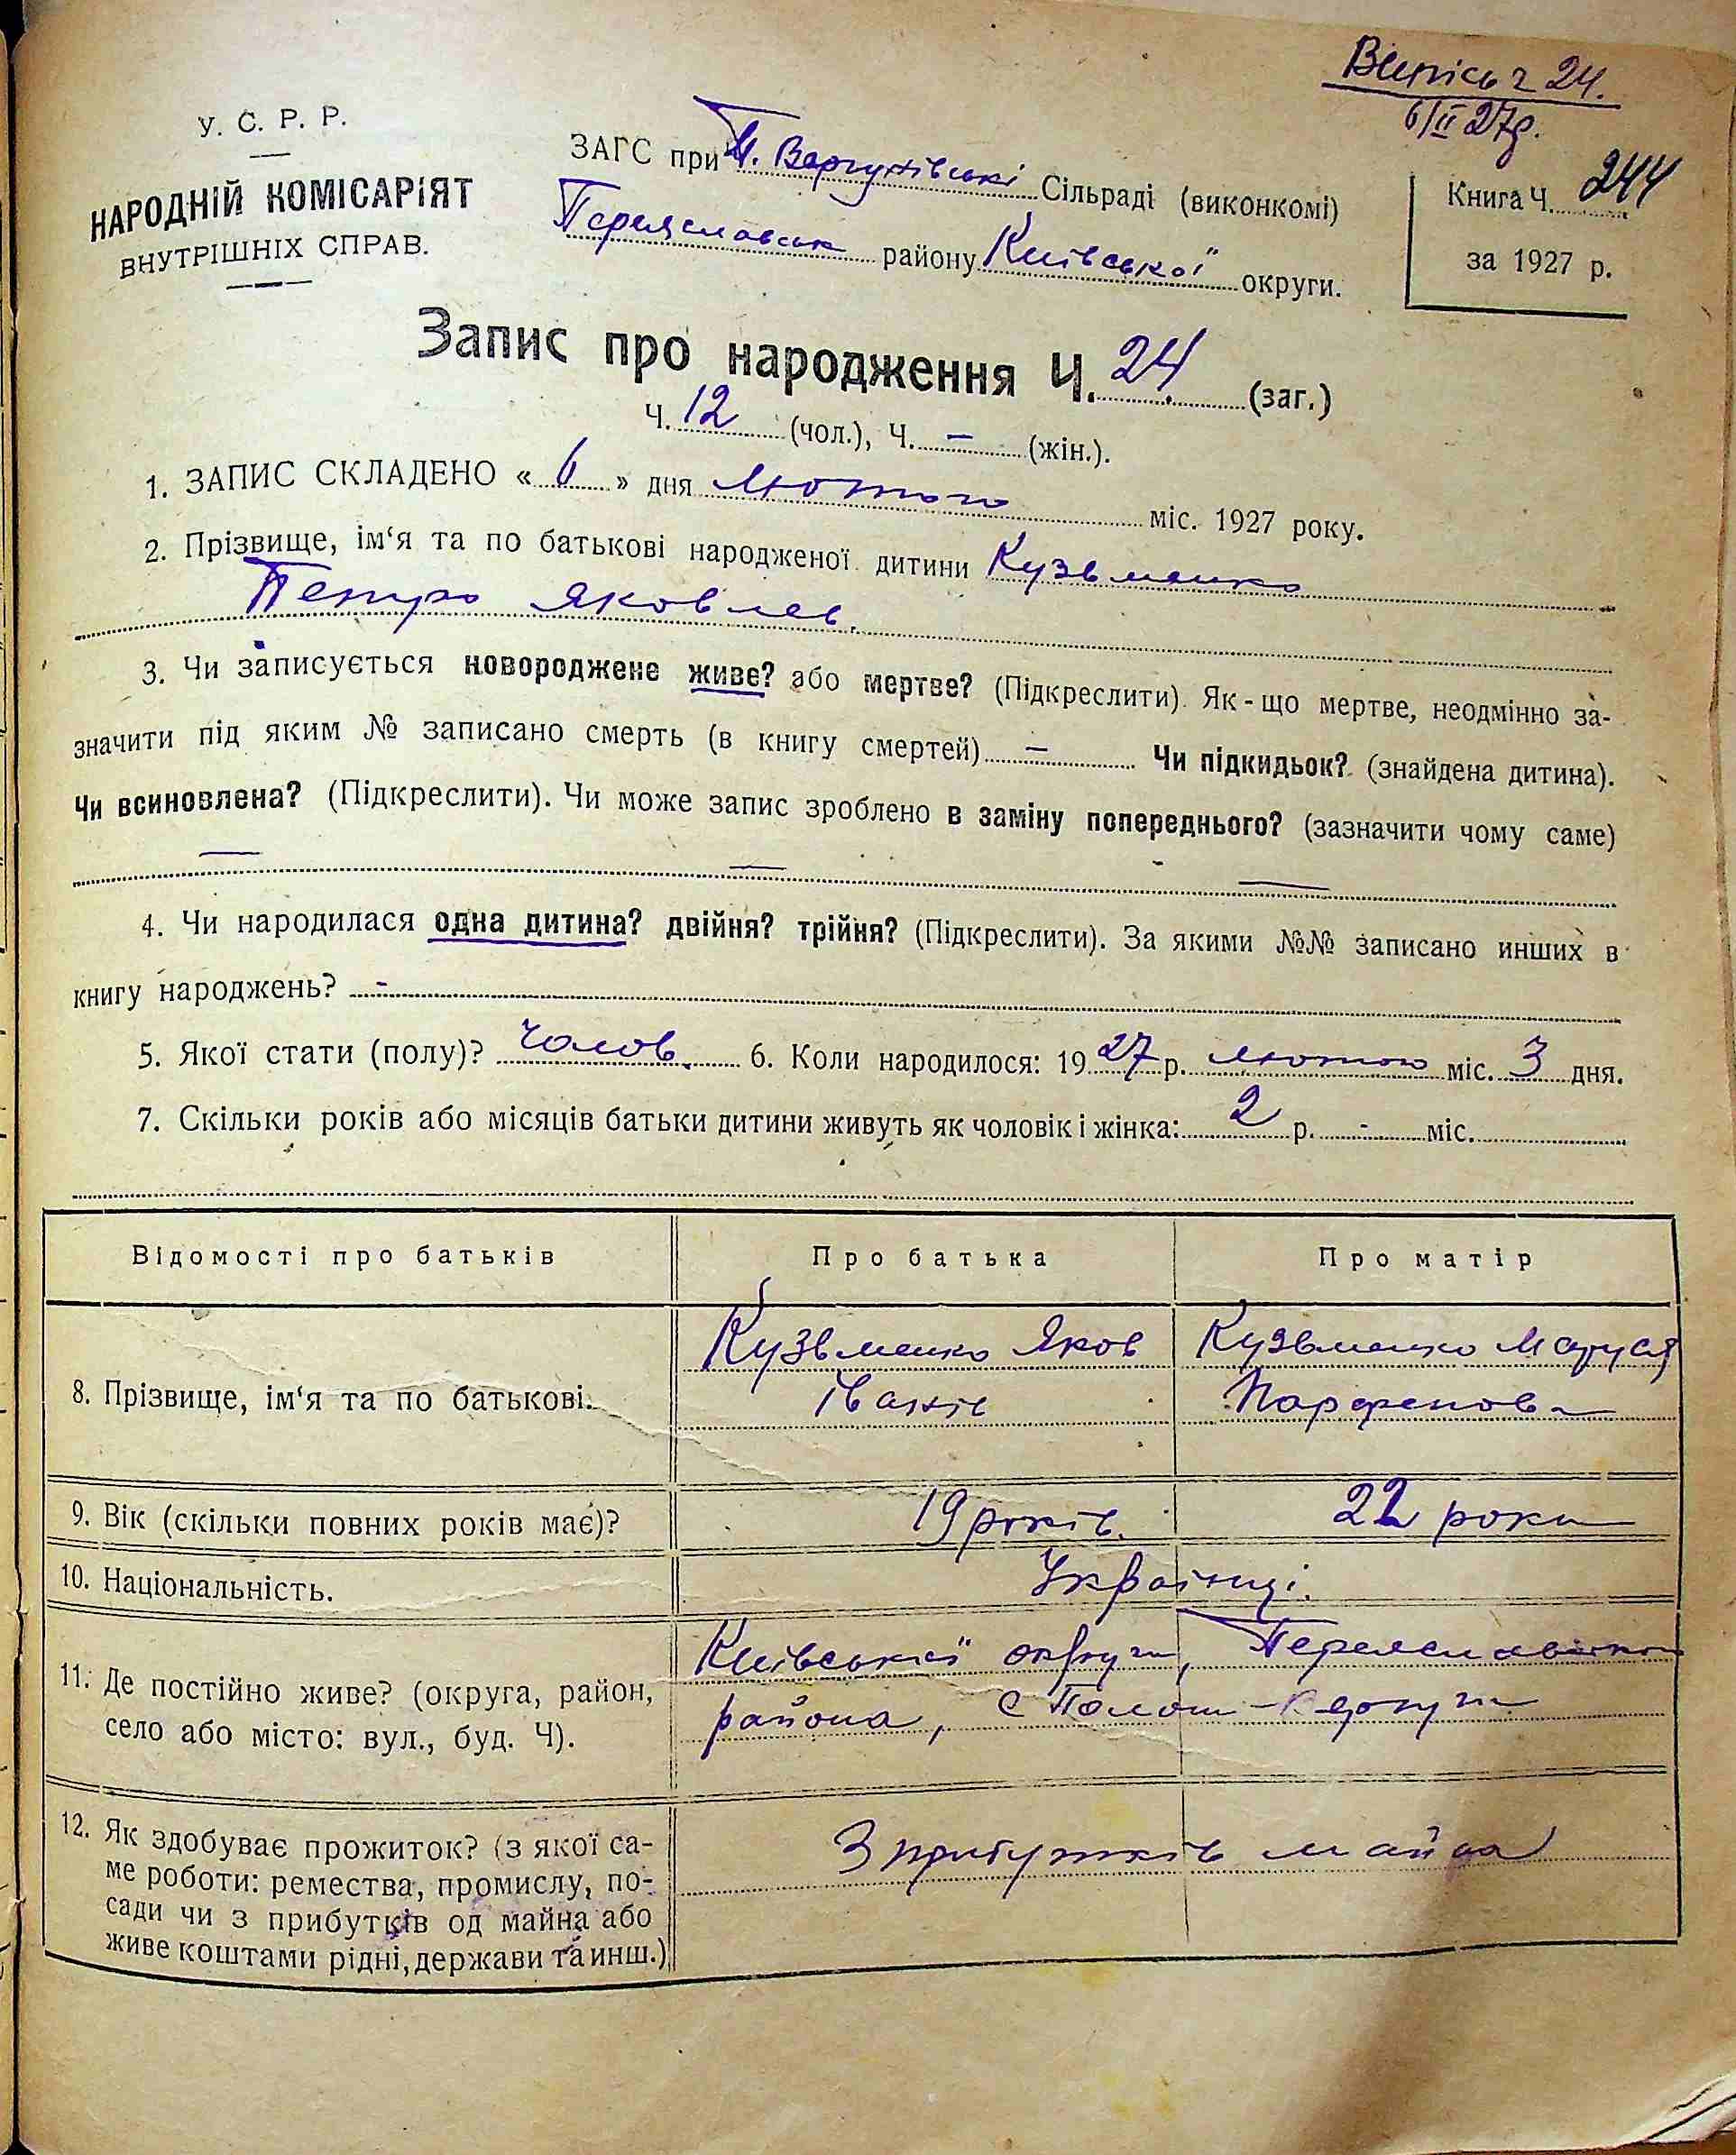 Випись ч 24.
6/II 27р.
У. С. Р. Р.
НАРОДНІЙ КОМІСАРІЯТ
ВНУТРІШНІХ СПРАВ.
ЗАГС при П. Вергунівські Сільраді (виконкомі)
Переяславськ району Київської округи.
Книга Ч. 244
за 1927 р.
Запис про народження Ч. 24 (заг.)
Ч. 12 (чол.), Ч. — (жін.).
1. ЗАПИС СКЛАДЕНО « 6 » дня лютого міс. 1927 року.
2. Прізвище, ім‘я та по батькові народженої дитини Кузьменко
Петро Яковлев.
3. Чи записується новороджене живе? або мертве? (Підкреслити). Як-що мертве, неодмінно за-
значити під яким № записано смерть (в книгу смертей) — Чи підкидьок? (знайдена дитина).
Чи всиновлена? (Підкреслити). Чи може запис зроблено в заміну попереднього? (зазначити чому саме)
— — —
4. Чи народилася одна дитина? двійня? трійня? (Підкреслити). За якими №№ записано инших в
книгу народжень? -
5. Якої стати (полу)? Чолов. 6. Коли народилося: 1927 р. лютого міс. 3 дня.
7. Скільки років або місяців батьки дитини живуть як чоловік і жінка: 2 р. - міс.
Відомості про батьків Про батька Про матір
Кузьменко Яков Кузьменко Маруся
8. Прізвище, ім‘я та по батькові. Іванів Парфенова
9. Вік (скільки повних років має)? 19 років. 22 роки
10. Національність. Українці.
Київської округи, Переяславськ
11. Де постійно живе? (округа, район, района, с
село або місто: вул., буд. Ч).
12. Як здобуває прожиток? (з якої са- З прибутків майна
ме роботи: ремества, промислу, по-
сади чи з прибутків од майна або
живе коштами рідні, держави та инш.)